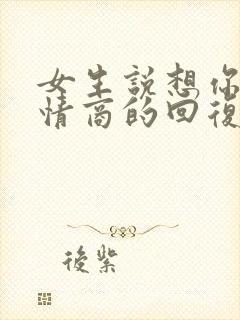 女生說想你
情商的回復
後紫